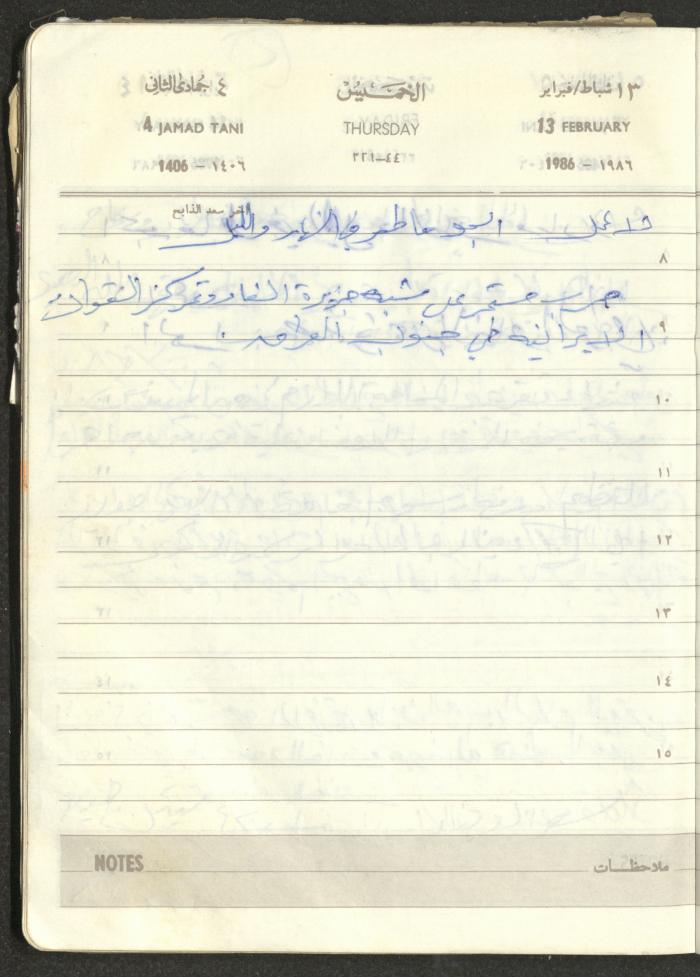 ١٣ شباط/فبراير الخميس ٤ جمادى الثاني
13 FEBRUARY THURSDAY 4 JAMAD TANI
1986 — ١٩٨٦ ٤٤—٣٢١ 1406 — ١٤٠٦
سعد الذابح
لا عمل الجو ماطر في النهار والليل
٨
حرب مستمر على شبه جزيرة الفاو وتمركز القوات
٩
الايرانية في جنوب العراق.
١٠
١١
١٢
١٣
١٤
١٥
NOTES ملاحظات